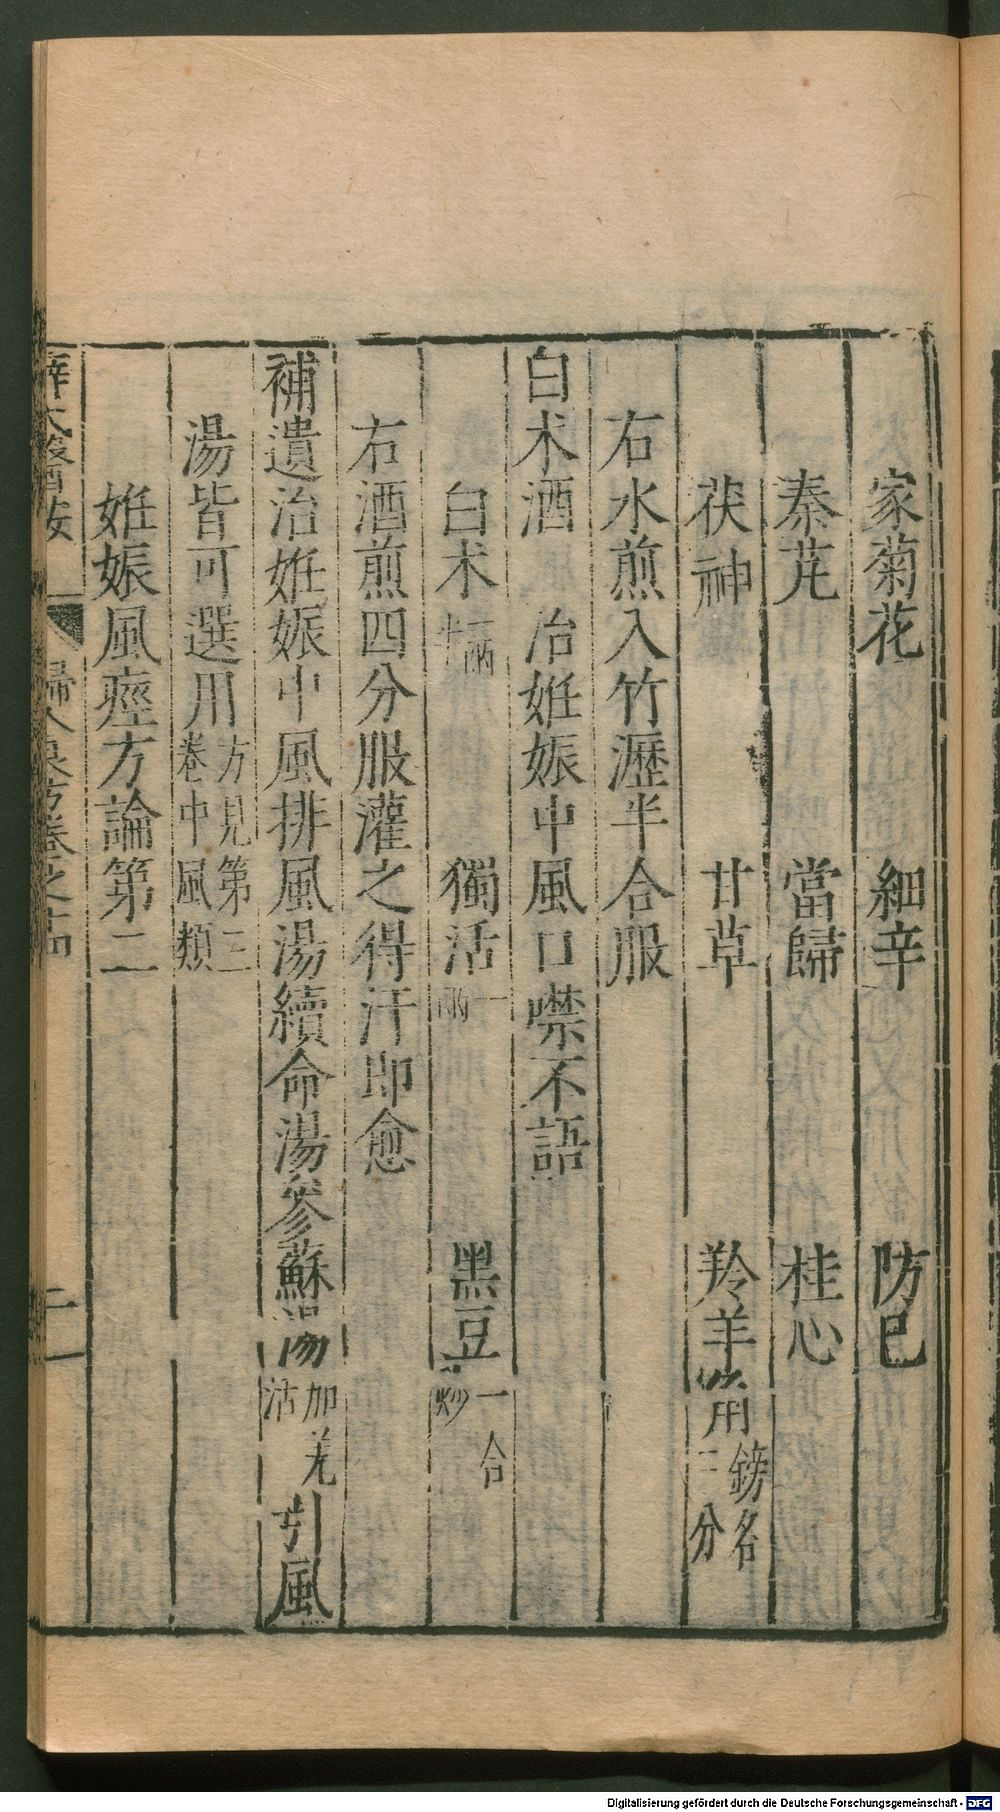 家菊花 細辛 防已
秦艽 當歸 桂心
茯神 甘草 羚羊 鎊各三分
右水煎入竹瀝半合服
白术酒 治姙娠中風口噤不語
白术一兩半 獨活一兩 黑豆一合炒
右酒煎四分服灌之得汗即愈
補遺治姙娠中風排風湯續命湯參蘇湯加羌活 引風
湯皆可選用方見第三卷中風類
姙娠風痙方論第二
婦人良方卷之十四 二
Digitalisierung gefördert durch die Deutsche Forschungsgemeinschaft - DFG